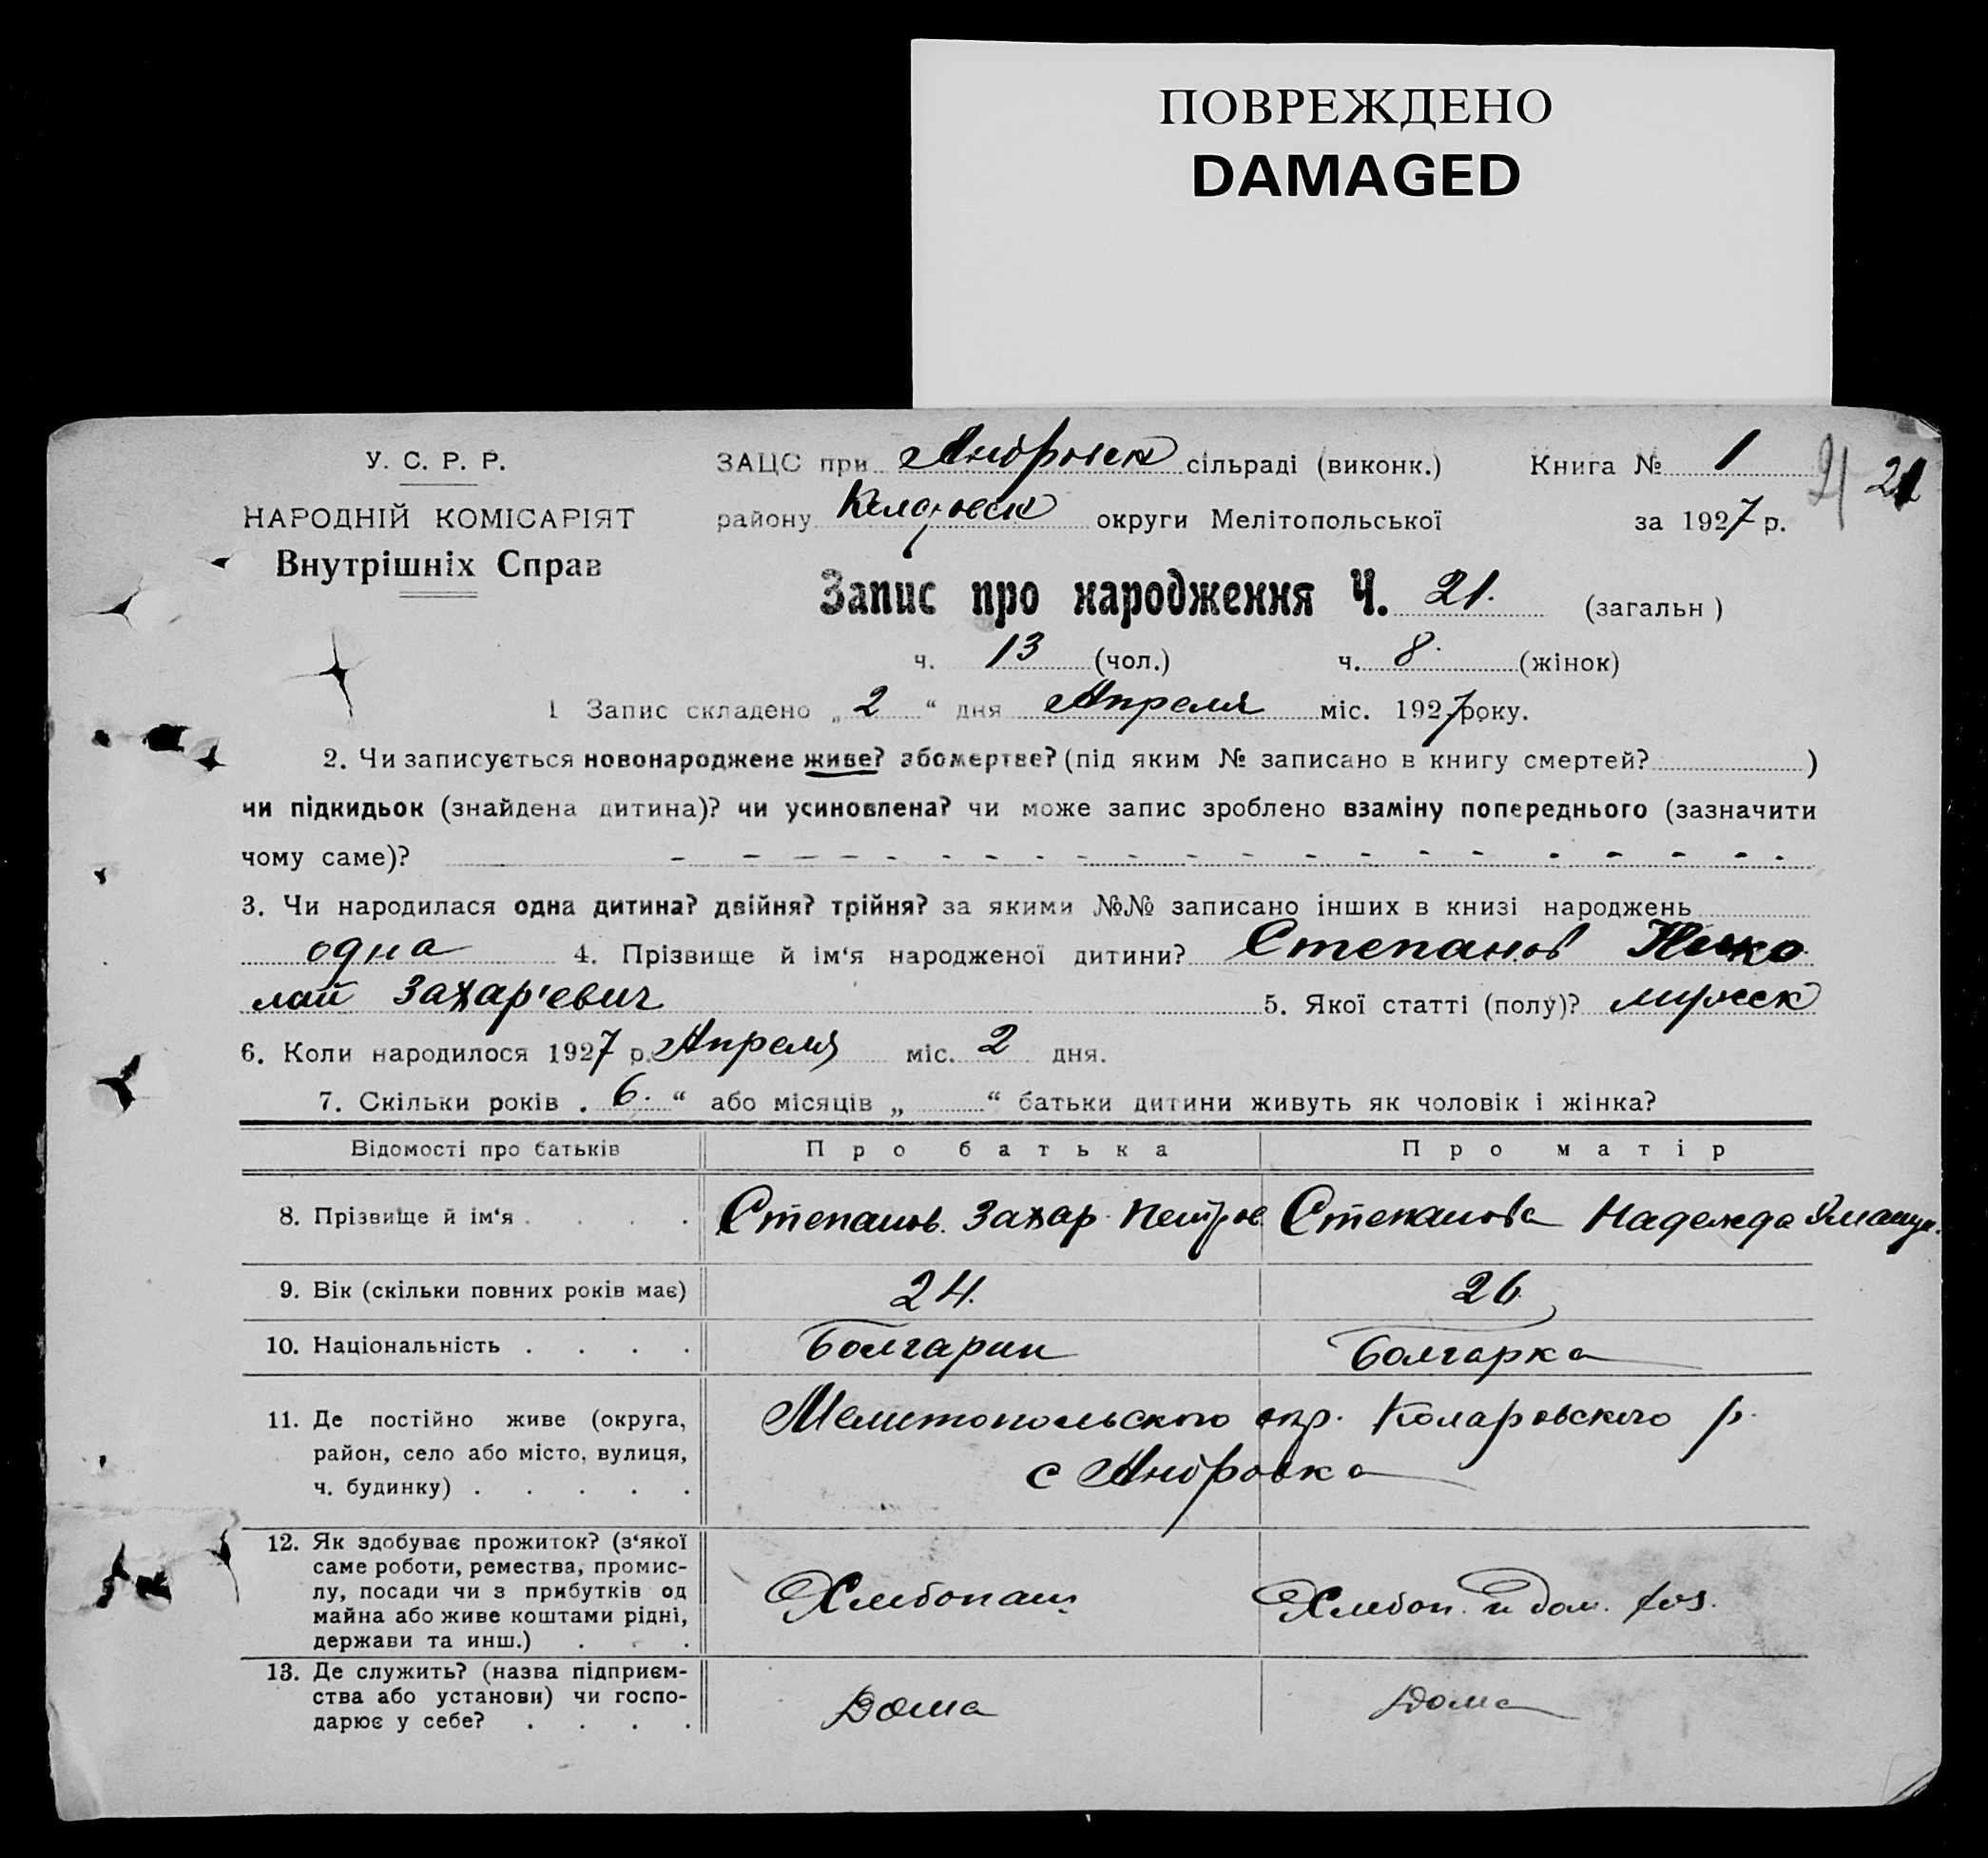 ПОВРЕЖДЕНО
DAMAGED
У. С. Р. Р.
НАРОДНІЙ КОМІСАРІЯТ
Внутрішніх Справ
ЗАЦС при Андровск сільраді (виконк.) Книга № 1 21 21
району Коларовск округи Мелітопольської за 1927 р.
Запис про народження Ч. 21. (загальн)
ч. 13 (чол.) ч. 8. (жінок)
1 Запис складено „ 2 “ дня Апреля міс. 1927 року.
2. Чи записується новонароджене живе? або мертве? (під яким № записано в книгу смертей? )
чи підкидьок (знайдена дитина)? чи усиновлена? чи може запис зроблено взаміну попереднього (зазначити
чому саме)? - - - - - - - - - - - - - - - - - - - -
3. Чи народилася одна дитина? двійня? трійня? за якими №№ записано інших в книзі народжень
одна 4. Прізвище й ім‘я народженої дитини? Степанов Нико
лай Захар'евич 5. Якої статті (полу)? мужск
6. Коли народилося 1927 р. Апреля міс. 2 дня.
7. Скільки років . 6. “ або місяців „ “ батьки дитини живуть як чоловік і жінка?
Відомості про батьків Про батька Про матір
8. Прізвище й ім‘я . . . . Степанов. Захар Петров Степанова Надежда
9. Вік (скільки повних років має) 24. 26
10. Національність . . . . Болгарин Болгарка
11. Де постійно живе (округа,
район, село або місто, вулиця,
ч. будинку) . . . . .
Мелитопольского окр. Коларовского р.
с Андровка
12. Як здобуває прожиток? (з‘якої
саме роботи, ремества, промис-
лу, посади чи з прибутків од
майна або живе коштами рідні,
держави та инш.) . . .
Хлебопаш Хлебоп. и дом. хоз.
13. Де служить? (назва підприєм-
ства або установи) чи госпо-
дарює у себе? . . . .
Дома Дома